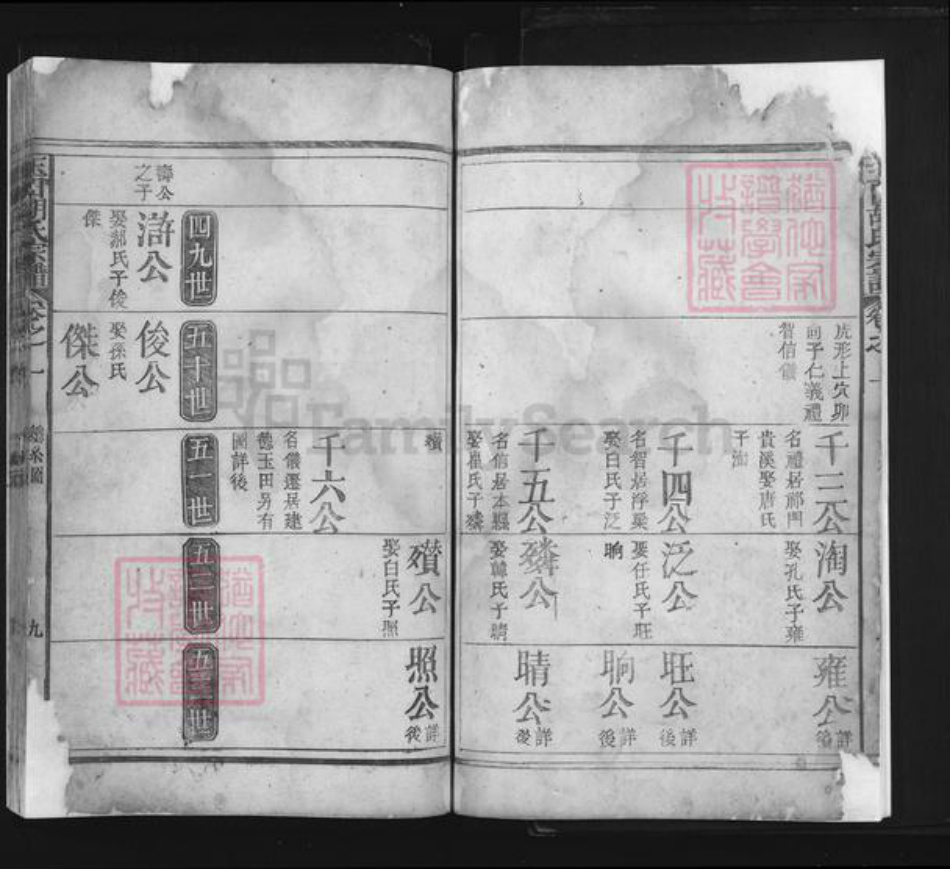 虎形上穴卯
向子仁義禮
智信儀
千三公
名禮居祁門
貴溪娶唐氏
子淘
淘公
娶孔氏子雍
雍公
詳後
千四公
名智居浮梁
娶白氏子泛
泛公
娶任氏子旺
晌
旺公
詳後
晌公
詳後
千五公
名信居本縣
娶崔氏子㷠
㷠公
娶韓氏子晴
晴公
詳後
九
四九世
五十世
五一世
五二世
五三世
纘
纘公
娶白氏子照
照公
詳後
千六公
名儀遷居建
德玉田另有
圖詳後
壽公
之子
滸公
娶郝氏子俊
傑
俊公
娶孫氏
傑公
猶他家
譜學會
收藏
猶他家
譜學會
收藏
FamilySearch